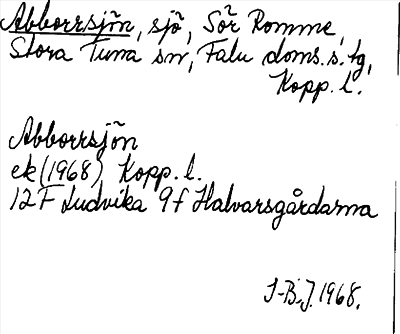 Abborrsjön, sjö, Sör Romme,
Stora Tuna sn, Falu doms.s. tg,
Kopp. l.
Abborrsjön
ek (1968) Kopp. l.
12F Ludvika 9f Halvarsgårdarna
I-B.J. 1968.